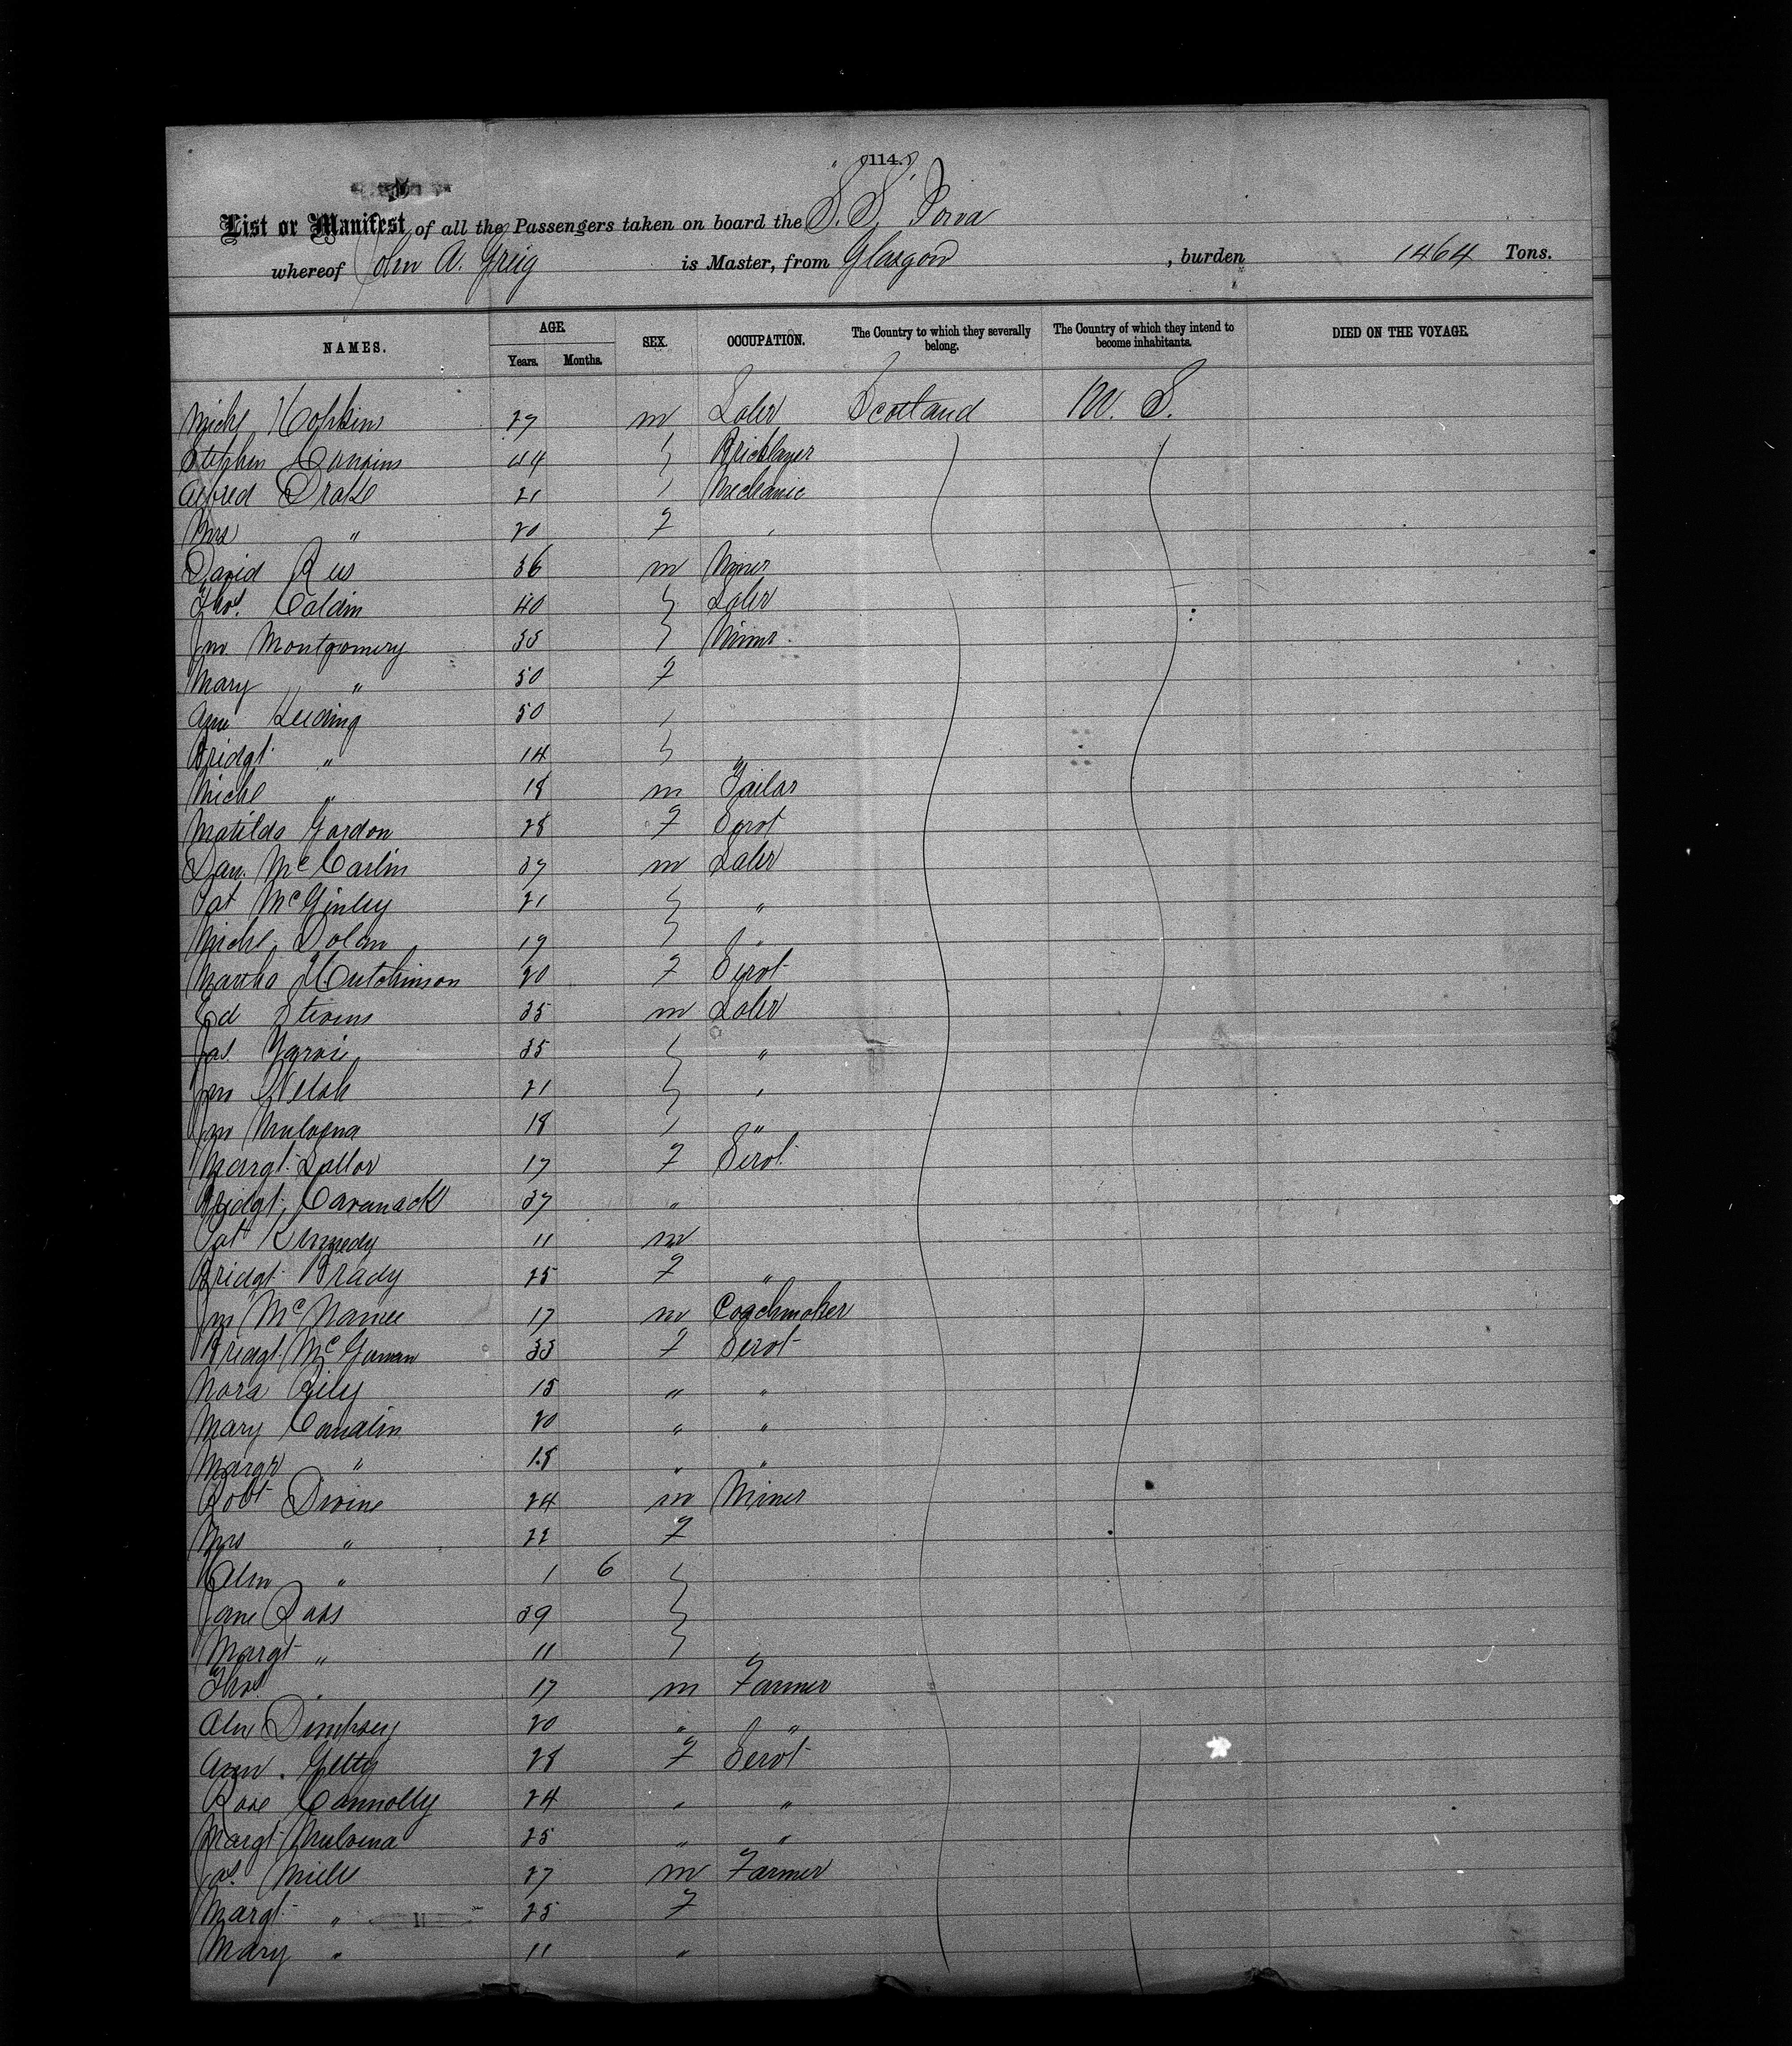 114.
List or Manifest of all the Passengers taken on board the S.S.
whereof John A. Greig is Master, from Glasgow, burden 1464 Tons.
NAMES. AGE. SEX. OCCUPATION. The Country to which they severally belong. The Country of which they intend to become inhabitants. DIED ON THE VOYAGE.
Years. Months.
Michl Hopkins 27 m Labr Scotland U. S.
Stephen 44 Bricklayer
Alfred Drake 21 Mechanic
Mrs " 20 F
David Rees 36 m Miner
Thos. 40 Labr
Jno Montgomery 55 Miner
Mary " 50 F
Ann 50
Bridgt " 14
Michl " 18 m Tailor
Matilda Gordon 28 F Servt
Dan. McCarlin 37 m Labr
Pat McGinley 21 "
Michl Dolan 19 "
Martha Hutchinson 20 F Servt
Ed Stevens 35 m Labr
Jas 35 "
Jno Welsh 21 "
Jno 18 "
Margt Lallor 17 F Servt
Bridgt Cavanack 37 "
Pat Kennedy 11 m
Bridgt Brady 25 F "
Jno McNamee 17 m Coachmaker
Bridgt McGowan 33 F Servt
Nora Rily 15 " "
Mary 20 " "
Margr " 18 " "
Robt Divine 24 m Miner
Mrs " 22 F
" 1 6
Jane Ross 39
Margt " 11
Thos " 17 m Farmer
Alex Dempsey 20 " "
Ann Getty 28 F Servt
Rose Connolly 24 " "
Margt Mulvena 25 " "
Jas. 27 m Farmer
Margt " 25 F
Mary " 11 "